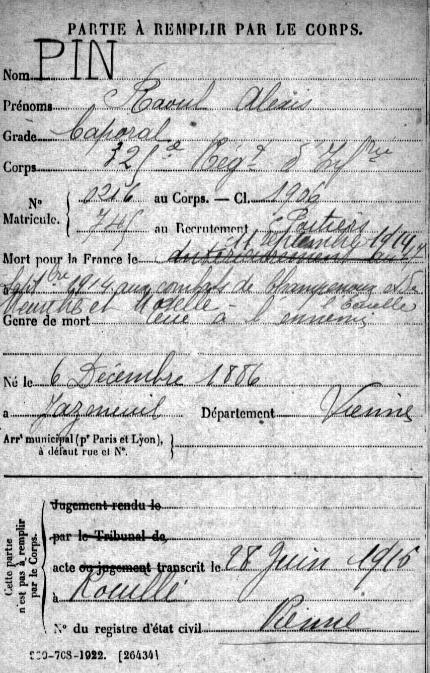 PARTIE À REMPLIR PAR LE CORPS.
Nom PIN
Prénoms Raoul Alexis
Grade Caporal
Corps 325e Régt d'Infrie
No Matricule. 0216 au Corps. — Cl. 1906
745 au Recrutement Poitiers
11 septembre 1914
Mort pour la France le
à 1914 aux combats de Champenoux et de
Meurthe et Moselle
Genre de mort Tué à l'ennemi
Né le 6 Décembre 1886
à Jazeneuil Département Vienne
Arrt municipal (pr Paris et Lyon),
à défaut rue et No.
Cette partie n'est pas à remplir par le Corps.
Jugement rendu le
par le Tribunal de
acte ou jugement transcrit le 28 Juin 1916
à Rouillé
Vienne
No du registre d'état civil
-708-1922. [26434]